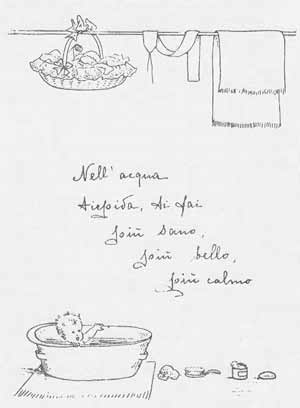 Nell' acqua
tiepida, ti fai
più sano,
più bello,
più calmo